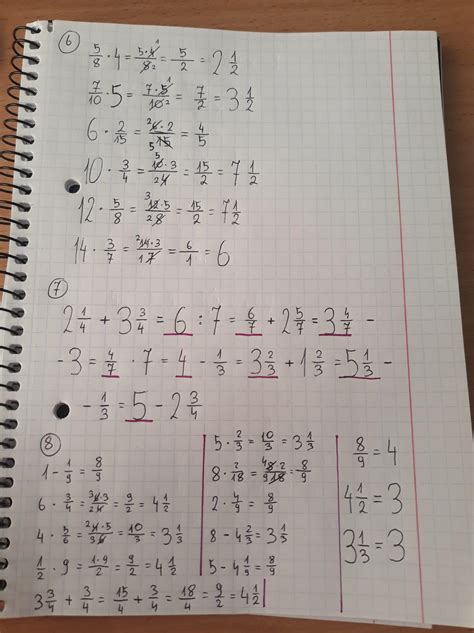 6
5/8 · 4 = 5·4/8 = 5/2 = 2 1/2
7/10 · 5 = 7·5/10 = 7/2 = 3 1/2
6 · 2/15 = 6·2/15 = 4/5
10 · 3/4 = 10·3/4 = 15/2 = 7 1/2
12 · 5/8 = 12·5/8 = 15/2 = 7 1/2
14 · 3/7 = 14·3/7 = 6/1 = 6
7
2 1/4 + 3 3/4 = 6 : 7 = 6/7 + 2 5/7 = 3 4/7 -
- 3 = 4/7 · 7 = 4 - 1/3 = 3 2/3 + 1 2/3 = 5 1/3 -
- 1/3 = 5 - 2 3/4
8
1 - 1/9 = 8/9
6 · 3/4 = 6·3/4 = 9/2 = 4 1/2
4 · 5/6 = 4·5/6 = 10/3 = 3 1/3
1/2 · 9 = 1·9/2 = 9/2 = 4 1/2
3 3/4 + 3/4 = 15/4 + 3/4 = 18/4 = 9/2 = 4 1/2
5 · 2/3 = 10/3 = 3 1/3
8 · 2/18 = 8·2/18 = 8/9
2 · 4/9 = 8/9
8 - 4 2/3 = 3 1/3
5 - 4 1/9 = 8/9
8/9 = 4
4 1/2 = 3
3 1/3 = 3